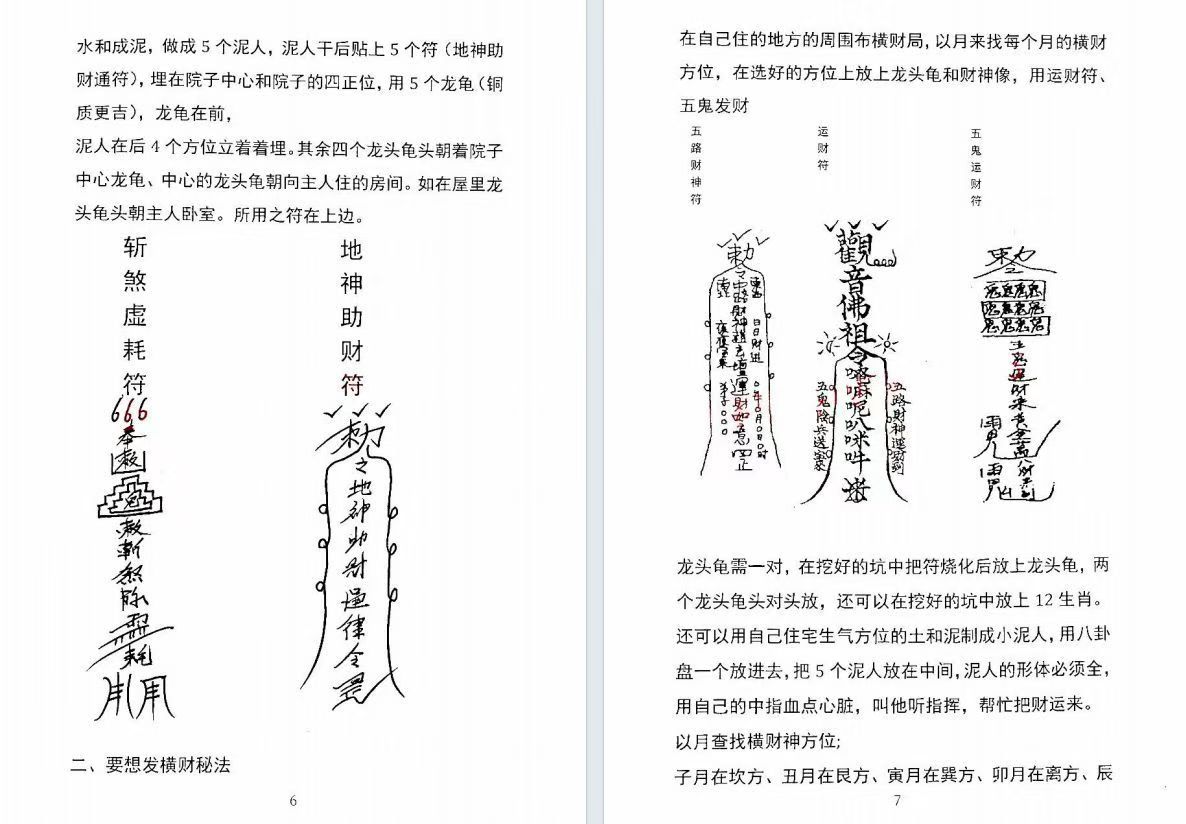 水和成泥，做成 5 个泥人，泥人干后贴上 5 个符（地神助
财通符），埋在院子中心和院子的四正位，用 5 个龙龟（铜
质更吉），龙龟在前，
泥人在后 4 个方位立着着埋。其余四个龙头龟头朝着院子
中心龙龟、中心的龙头龟朝向主人住的房间。如在屋里龙
头龟头朝主人卧室。所用之符在上边。
斩煞虚耗符
地神助财符
勅
之地神助财
律令
二、要想发横财秘法
6
在自己住的地方的周围布横财局，以月来找每个月的横财
方位，在选好的方位上放上龙头龟和财神像，用运财符、
五鬼发财
五路财神符
运财符
五鬼运财符
勅令
觀音佛祖令
唵嘛呢叭咪吽
五鬼陰兵送宝來
五路財神運財到
龙头龟需一对，在挖好的坑中把符烧化后放上龙头龟，两
个龙头龟头对头放，还可以在挖好的坑中放上 12 生肖。
还可以用自己住宅生气方位的土和泥制成小泥人，用八卦
盘一个放进去，把 5 个泥人放在中间，泥人的形体必须全，
用自己的中指血点心脏，叫他听指挥，帮忙把财运来。
以月查找横财神方位;
子月在坎方、丑月在艮方、寅月在巽方、卯月在离方、辰
7